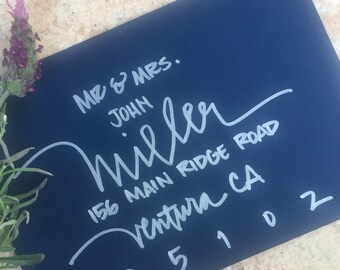 MR & MRS.
JOHN
Miller
156 MAIN RIDGE ROAD
Ventura CA
5102